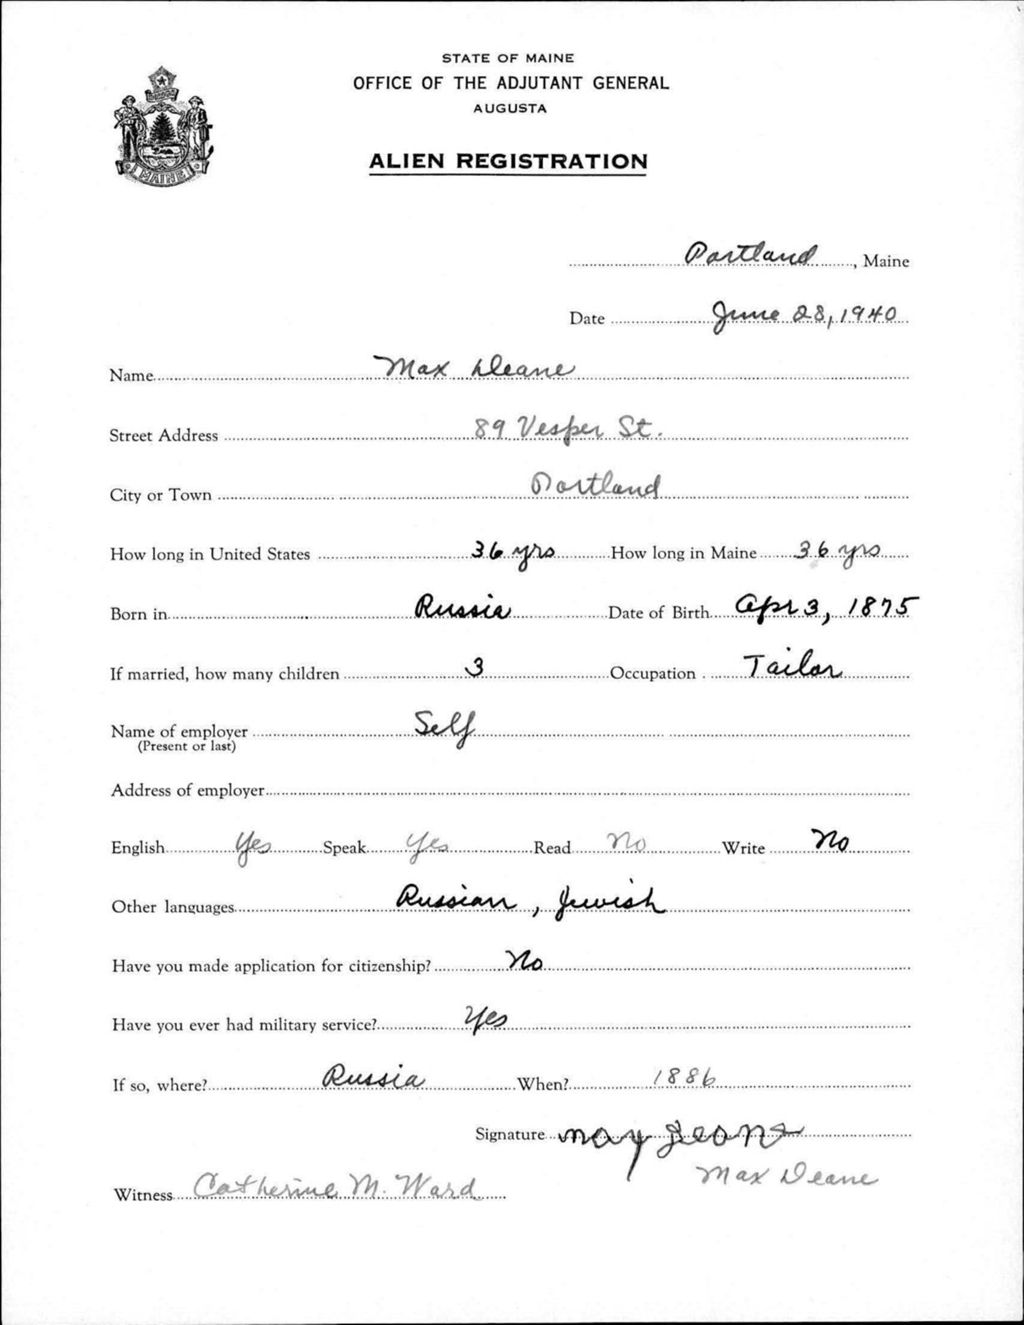 STATE OF MAINE
OFFICE OF THE ADJUTANT GENERAL
AUGUSTA
ALIEN REGISTRATION
MAINE
Portland, Maine
Date June 28, 1940
Name Max Deane
Street Address 89 Vesper St.
City or Town Portland
How long in United States 36 yrs How long in Maine 36 yrs
Born in Russia Date of Birth Apr 3, 1875
If married, how many children 3 Occupation Tailor
Name of employer Self
(Present or last)
Address of employer
English Yes Speak Yes Read No Write No
Other languages Russian, Jewish
Have you made application for citizenship? No
Have you ever had military service? Yes
If so, where? Russia When? 1886
Signature
Max Deane
Witness Catherine M. Ward